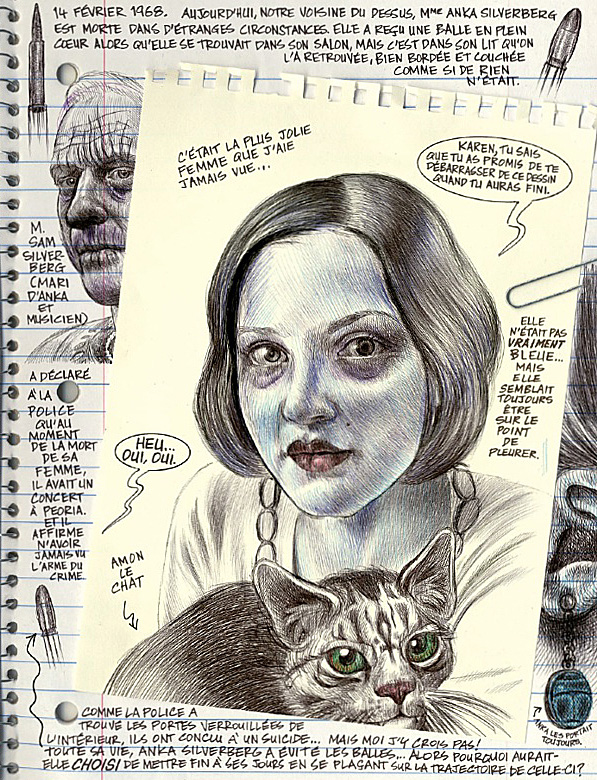 14 FÉVRIER 1968. AUJOURD'HUI, NOTRE VOISINE DU DESSUS, Mme ANKA SILVERBERG
EST MORTE DANS D'ÉTRANGES CIRCONSTANCES. ELLE A REÇU UNE BALLE EN PLEIN
CŒUR ALORS QU'ELLE SE TROUVAIT DANS SON SALON, MAIS C'EST DANS SON LIT QU'ON
L'A RETROUVÉE, BIEN BORDÉE ET COUCHÉE
COMME SI DE RIEN
N'ÉTAIT.
C'ÉTAIT LA PLUS JOLIE
FEMME QUE J'AIE
JAMAIS VUE...
KAREN, TU SAIS
QUE TU AS PROMIS DE TE
DÉBARRASSER DE CE DESSIN
QUAND TU AURAS FINI.
M.
SAM
SILVER-
BERG
(MARI
D'ANKA
ET
MUSICIEN)
ELLE
N'ÉTAIT PAS
VRAIMENT
BLEUE...
MAIS
ELLE
SEMBLAIT
TOUJOURS
ÊTRE
SUR LE
POINT
DE
PLEURER.
A DÉCLARÉ
À LA
POLICE
QU'AU
MOMENT
DE LA MORT
DE SA
FEMME,
IL AVAIT UN
CONCERT
À PEORIA.
ET IL
AFFIRME
N'AVOIR
JAMAIS VU
L'ARME DU
CRIME.
HEU...
OUI, OUI.
AMON
LE
CHAT
ANKA LES PORTAIT
TOUJOURS.
COMME LA POLICE A
TROUVÉ LES PORTES VERROUILLÉES DE
L'INTÉRIEUR, ILS ONT CONCLU À UN SUICIDE... MAIS MOI J'Y CROIS PAS!
TOUTE SA VIE, ANKA SILVERBERG A ÉVITÉ LES BALLES... ALORS POURQUOI AURAIT-
ELLE CHOISI DE METTRE FIN À SES JOURS EN SE PLAÇANT SUR LA TRAJECTOIRE DE CELLE-CI?